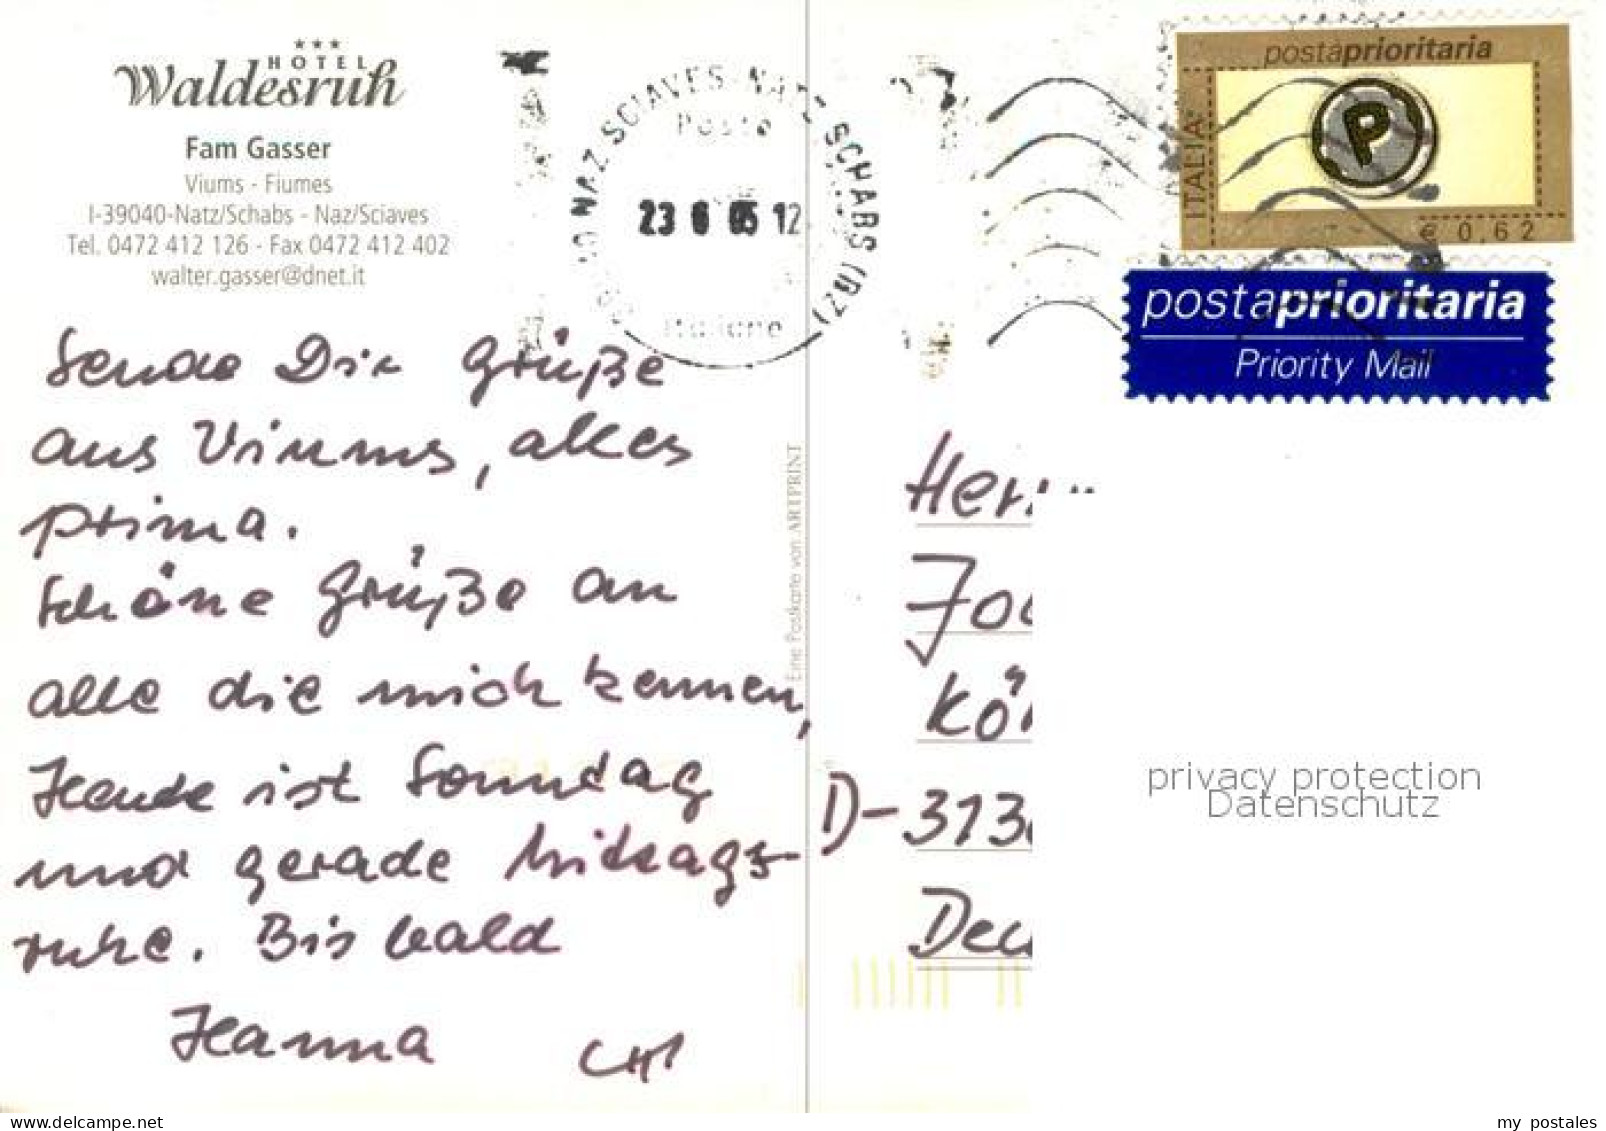 ★★★
HOTEL
Waldesruh
Fam Gasser
Viums - Fiumes
I-39040-Natz/Schabs - Naz/Sciaves
Tel. 0472 412 126 - Fax 0472 412 402
walter.gasser@dnet.it
NAZ SCIAVES-NATZ SCHABS (BZ)
Poste
23 6 05 12
Italiane
postaprioritaria
P
ITALIA
€ 0,62
postaprioritaria
Priority Mail
Sende Dir Grüße
aus Viums, alles
prima.
Schöne Grüße an
alle die mich kennen,
Heute ist Sonntag
und gerade Mittags-
ruhe. Bis bald
Hanna
Eine Postkarte von ARTPRINT
Her
Jo
Kö
D-313
Deu
privacy protection
Datenschutz
delcampe.net
my_postales